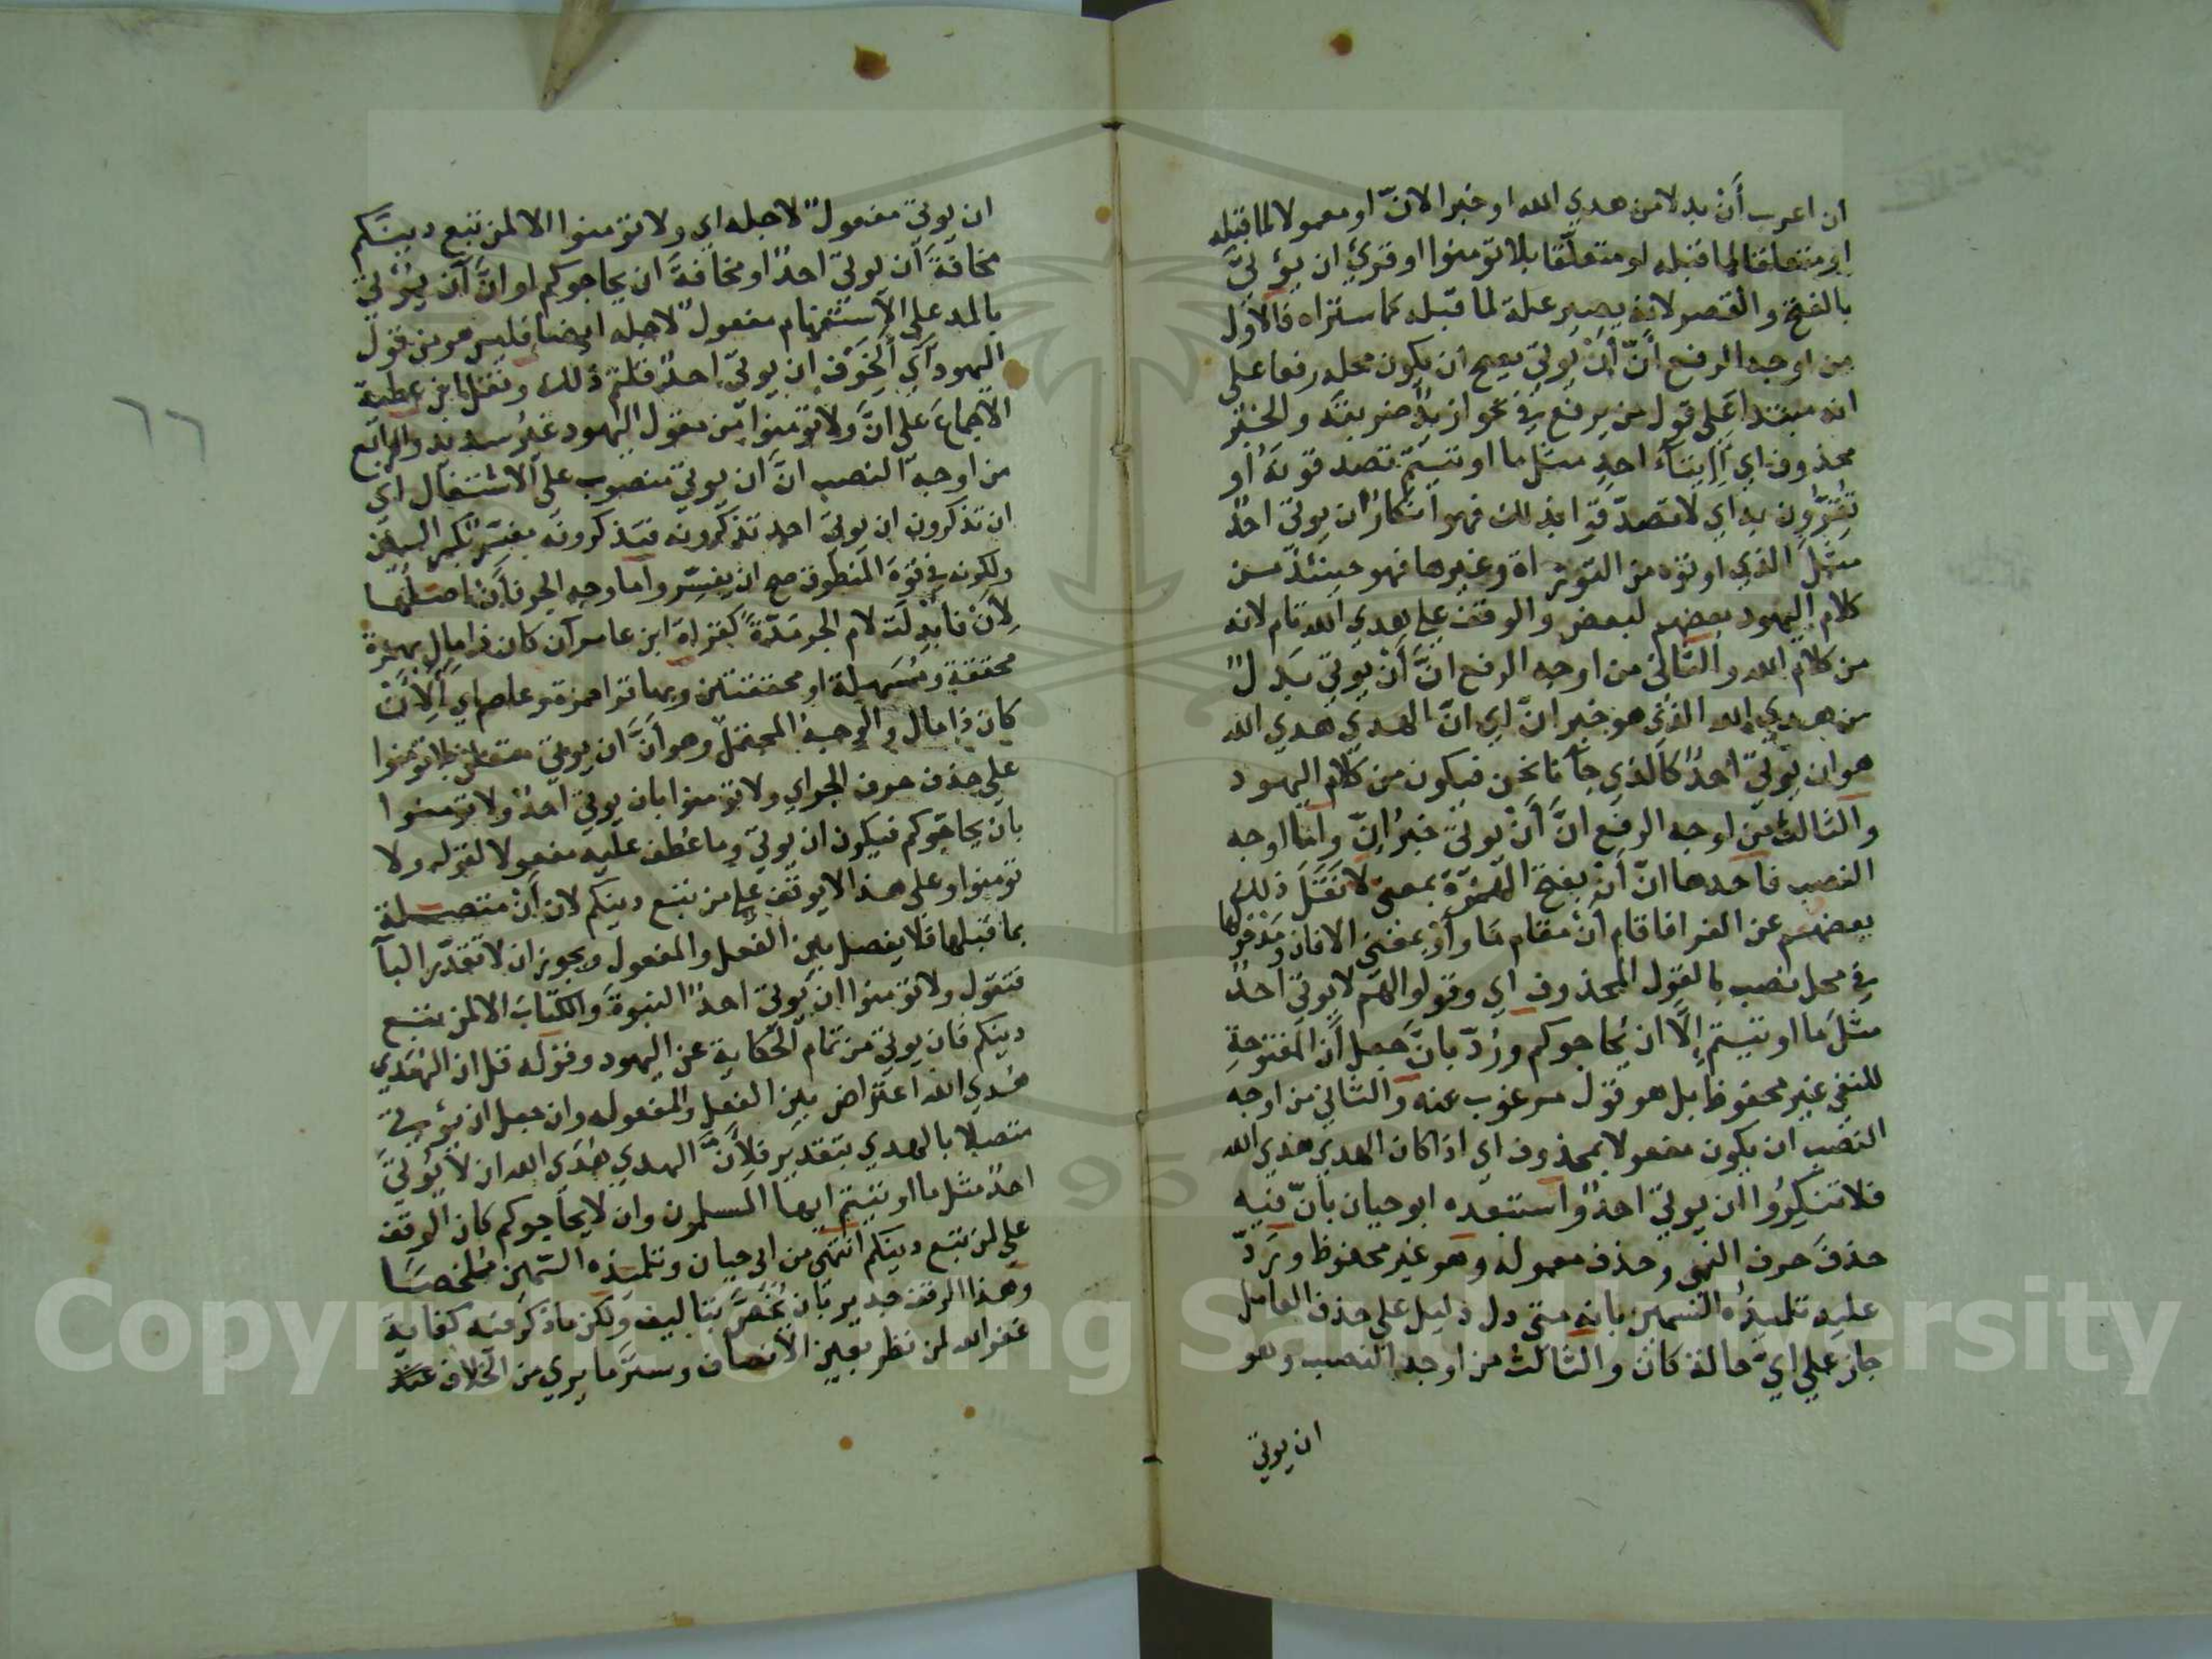 ان اعرب أَن بدلا من هدي الله او خبرا لانّ او معمولا لما قبله
او متعلقا لما قبله او متعلّقا بلا تؤمنوا او قرئ ان يؤتىَ
بالفتح والقصر لانه يصير علة لما قبله كما ستراه فالاول
من اوجه الرفع انّ أَنْ يُوتي يصح ان يكون محله رفعا على
انه مبتدا عَلي قول من يرفع في نحو ازيدٌ ضربته والخبر
محذوف اي أإيتآءُ احدٍ مثل ما اوتيتمْ تصدقونَه أو
تُقِرّون به اي لا تصدّقوا بذلك فهو انكار ان يوتي احدٌ
مثلَ الذي اوتوه من التورٰاة وغيرها فهو حينئذٍ من
كلام اليهود بعضهم لبعض والوقف على هدي الله تام لانه
من كلام الله والثاني من اوجه الرفع انَّ أَنْ يوتي بدلٌ
من هدي الله الذي هو خبر انّ اي انّ الهدي هدي الله
هو ان يوتيَ احدٌ كالذي جآنا نحن فيكون من كلام اليهود
والثالث من اوجه الرفع انَّ أَنْ يوتي خبرُ إنّ واما اوجه
النصب فاحدها انّ أنْ بفتح الهمزةَ بمعنى لا نَقَلَ ذلك
بعضهم عن الفرا فاقام أنْ مقام مَا وأَوْ بمعنى الا فان ومدخولها
في محل نصب بالقول المحذوف اي وقولوا لهم لا يوتي احدٌ
مثلَ ما اوتيتم إِلّا ان يُحاجوكم ورُدّ بانّ جعل أَن المفتوحةِ
للنفي غير محفوظ بل هو قول مرغوب عنه والثاني من اوجه
النصب ان يكون مفعولا بمحذوف اي اذا كان الهدي هدي الله
فلا تنكِرُوا ان يوتي احدٌ واستبعده ابو حيان بانّ فيه
حذفَ حرف النهي وحذف معموله وهو غير محفوظ ورَدّ
عليه تلميذُه السمين بانه متى دل دليل على حذف العامل
جاز علي ايّ حالة كان والثالث من اوجه النصب وهو
ان يوتي
٦٦
ان يوتي مفعولٌ لاجله اي ولا تؤمنوا الا لمن تبع دينكم
مخافةَ أن يوتيَ احدٌ او مخافةَ ان يحاجوكم او انَّ آن يُؤتي
بالمد على الاستفهام مفعولٌ لاجله ايضا فليس هو من قول
اليهود اي أَلِخَوْفِ ان يوتيَ احدٌ قلتم ذلك ونقل ابن عطية
الاجماعَ على انَّ ولا تؤمنوا من مقول اليهود غيرُ سديد والرابع
من اوجه النصب انَّ ان يوتي منصوب على الاشتغال اي
ان تذكرون ان يوتيَ احد تذكّرونه فتذكرونه مفسِّر بكسر السين
ولكونه في قوة المنطوق صح ان يفسَّر واما وجه الجر فأَنْ اصلها
لِأَنْ فابدِلَت لام الجر مَدّةً كقراة ابن عامر آن كان ذا مال بهمزة
محققة ومُسَهلة او محققتين وبها قرا حمزة وعاصم اي أَلِأَنْ
كان ذا مال والوجه المحتمل وهو أَنَّ ان يوتي متعلق بلا تومنوا
على حذف حرف الجر اي ولا تؤمنوا بان يوتي احدٌ ولا تومنوا
بان يحاجّوكم فيكون ان يوتي وما عُطف عليه مفعولا لقوله ولا
تومنوا وعلى هذا لا يوقف على من تبع دينكم لان أَنْ متصلة
بما قبلها فلا يفصل بين الفعل والمفعول ويجوز ان لا تقدّر البآ
فتقول ولا تؤمنوا ان يوتي احدٌ النبوة والكتابَ الا لمن تبع
دينكم فان يوتي من تمام الحكاية عن اليهود وقوله قل ان الهدي
هدي الله اعتراض بين الفعل والمفعوله وان جعل ان يؤتي
متصلا بالهدي بتقدير فلِأَنَّ الهدي هُدَي الله ان لا يُوتيَ
احدٌ مثل ما اوتيتم ايها المسلمون وان لا يحاجوكم كان الوقف
على لمن تبع دينكم انتهى من ابي حيان وتلميذه السمين ملخصًا
وهذا الوقف جدير بان يُخَصَّ بتاليف ولكن ما ذكر فيه كفاية
غفر الله لمن نظر بعين الانصاف وستر ما يري من الخلاف عنه